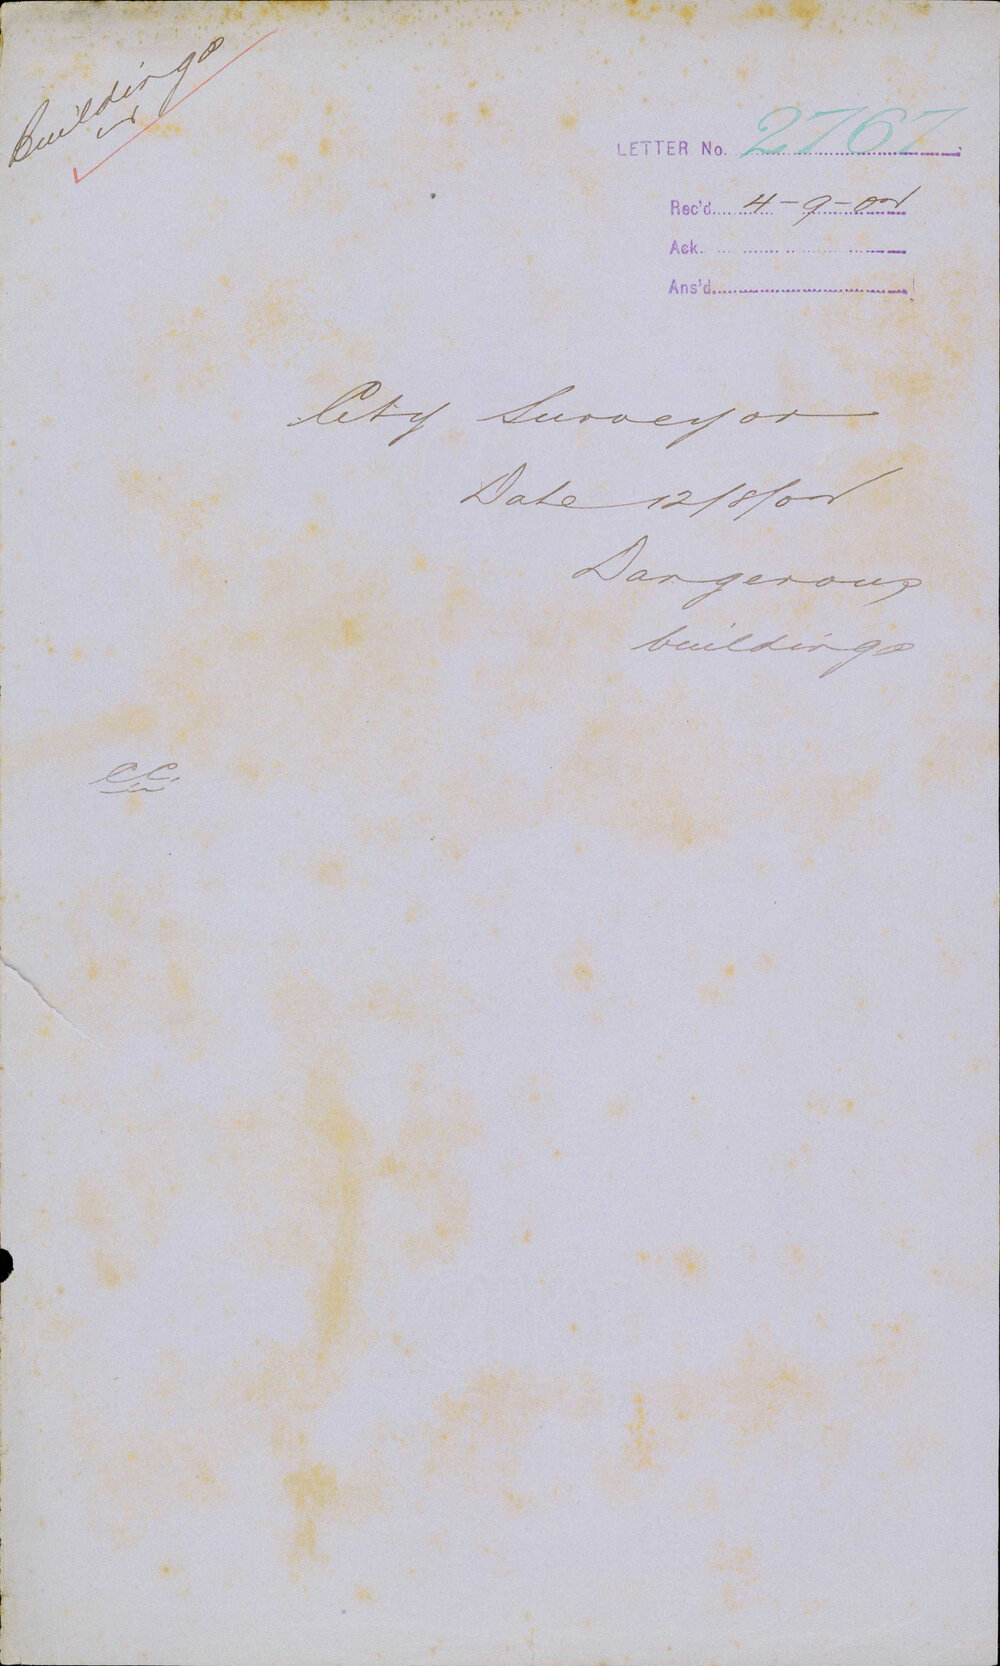 Buildings
LETTER No. 2767
Rec'd. 4-9-02
Ack.
Ans'd.
City Surveyor
Date 12/8/02
Dangerous
buildings
CC.